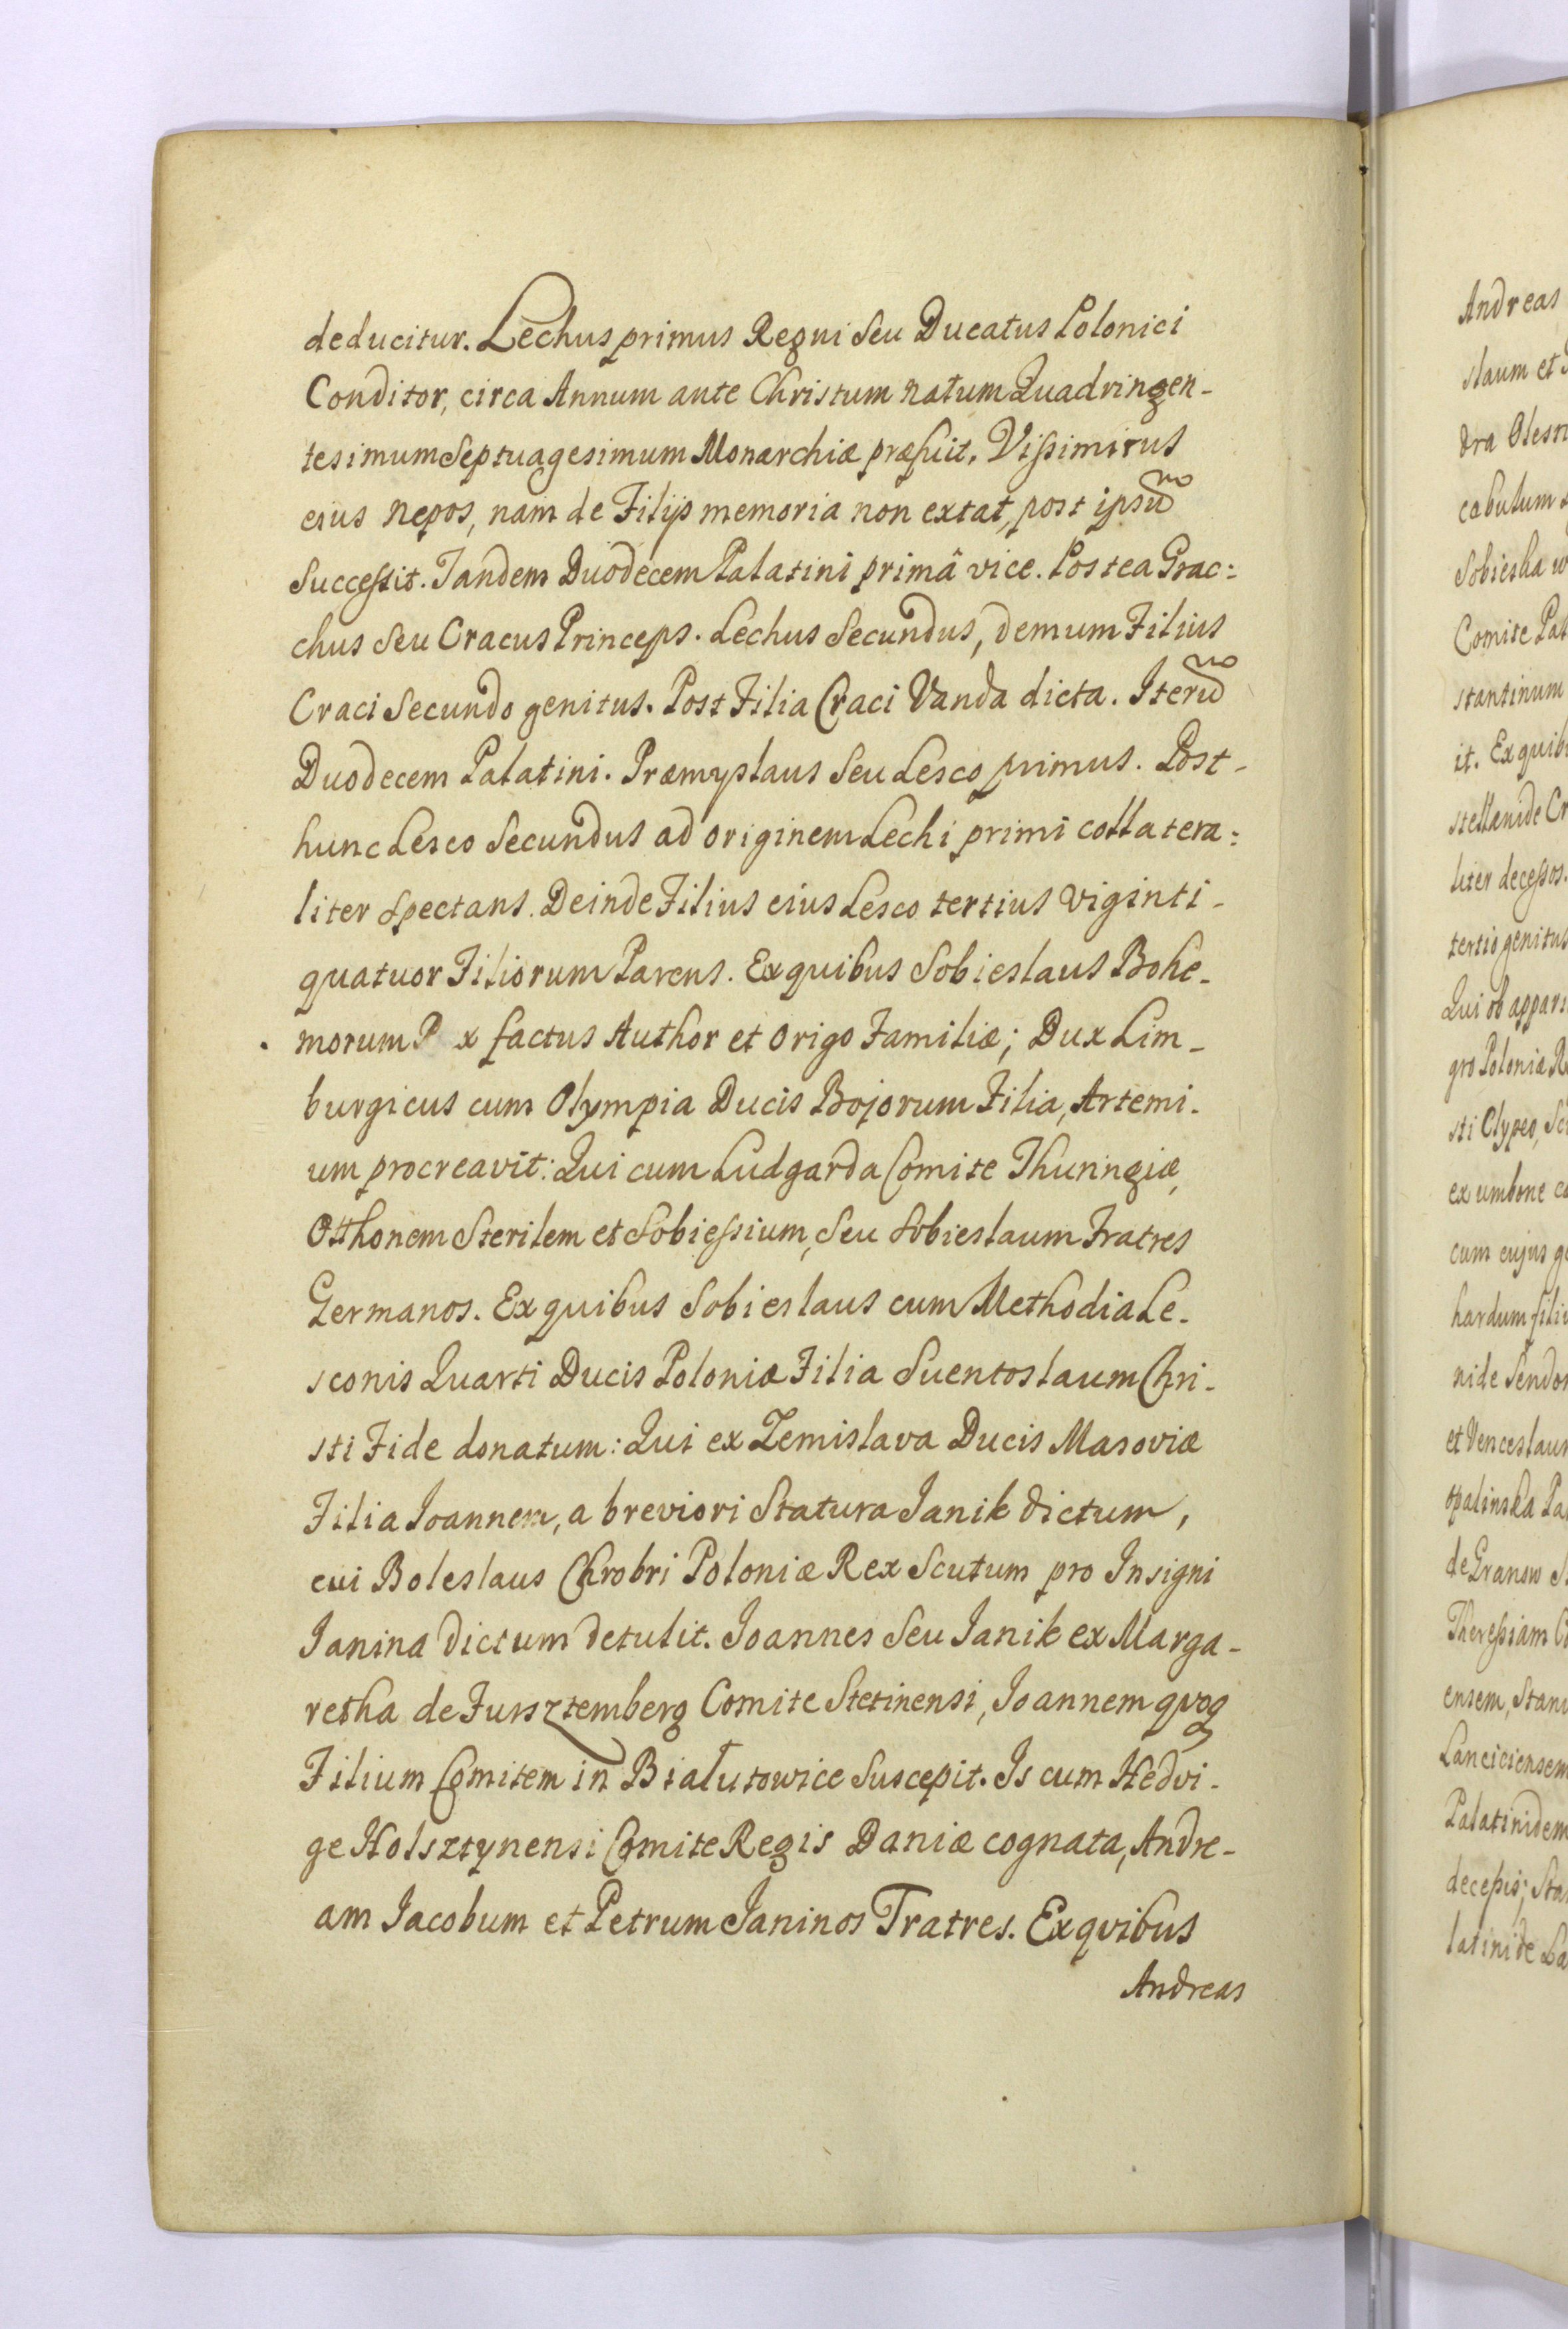 deducitur. Lechus primus Regni Seu Ducatus Polonici
Conditor, circa Annum ante Christum natum Quadringen-
tesimum Septuagesimum Monarchiæ præfuit. Vissimirus
eius nepos, nam de Filijs memoria non extat, post ipsũ
Successit. Tandem Duodecem Palatini primâ vice. Postea Grac:
chus Seu Cracus Princeps. Lechus Secundus, demum Filius
Craci Secundo genitus. Post Filia Craci Vanda dicta. Iterũ
Duodecem Palatini. Præmyslaus Seu Lesco primus. Post-
hunc Lesco Secundus ad originem Lechi primi collatera:
liter Spectans. Deinde Filius eius Lesco tertius viginti-
quatuor Filiorum Parens. Ex quibus Sobieslaus Bohe-
morum factus Author et origo Familiæ; Dux Lim-
burgicus cum Olympia Ducis Bojorum Filia, Artemi-
um procreavit: Qui cum Ludgarda Comite Thuringiæ,
Otthonem Sterilem et Sobiessium, Seu Sobieslaum Fratres
Germanos. Ex quibus Sobieslaus cum Methodia Le-
sconis Quarti Ducis Poloniæ Filia Suentoslaum Chri-
sti Fide donatum: Qui ex Zemislava Ducis Masoviæ
Filia Joannem, a breviori Statura Janik dictum,
cui Boleslaus Chrobri Poloniæ Rex Scutum pro Insigni
Janina dictum detulit. Joannes Seu Janik ex Marga-
retha de Fursztemberg Comite Stetinensi, Joannem qvoq
Filium Comitem in Bialutowice Suscepit. Is cum Hedvi-
ge Holsztynensi Comite Regis Daniæ cognata, Andre-
am Jacobum et Petrum Janinos Tratres. Ex qvibus
Andreas
Andreas
slaum et
dra Olesn
cabulum
Sobieska
Comite Pal
stantinum
it. Ex quib
stellanide Cr
liter decessos.
tertio genitus
Qui ob appari
gro Poloniæ R
sti Clypeo, Sc
ex umbone
cum cujus
hardum fili
nide Sendo
et Venceslau
opalinska Pa
de Granow
Theressiam
ensem, Stan
Lanciciensem
Palatinidem
decessis; Sta
latinide La